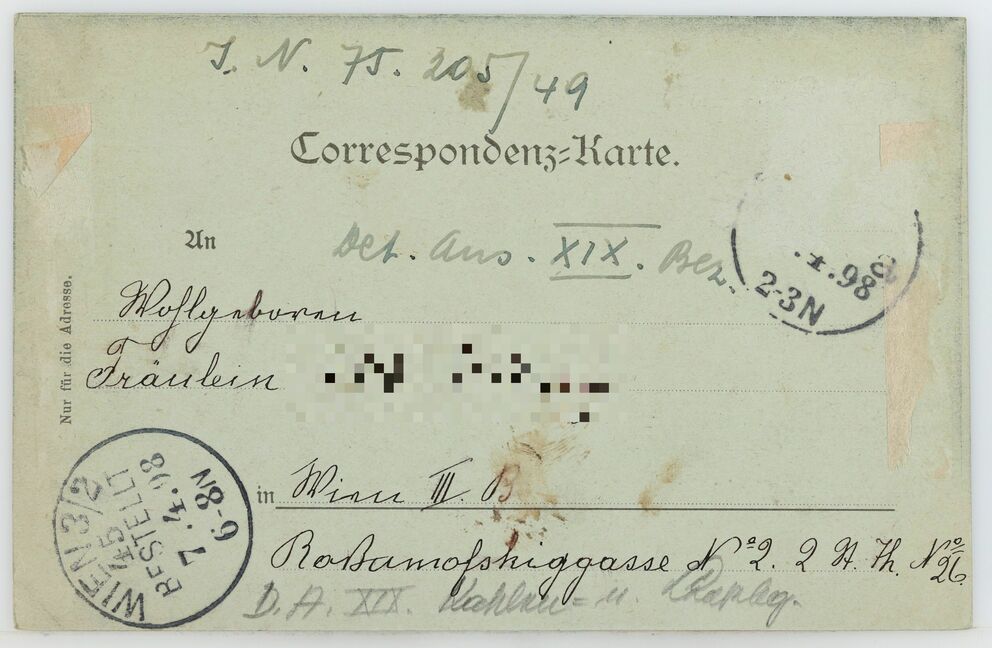 I. N. 75. 205/49
Correspondenz=Karte.
An
Det. Aus. XIX. Bez.
.4.98
2-3N
Nur für die Adresse.
Wohlgeboren
Fräulein
in Wien III. B
N° 2. 2 St. Th. N° 26
D. A. XIX. Kahlen= u.
WIEN 3/2
45
BESTELLT
7.4.98
6-8N